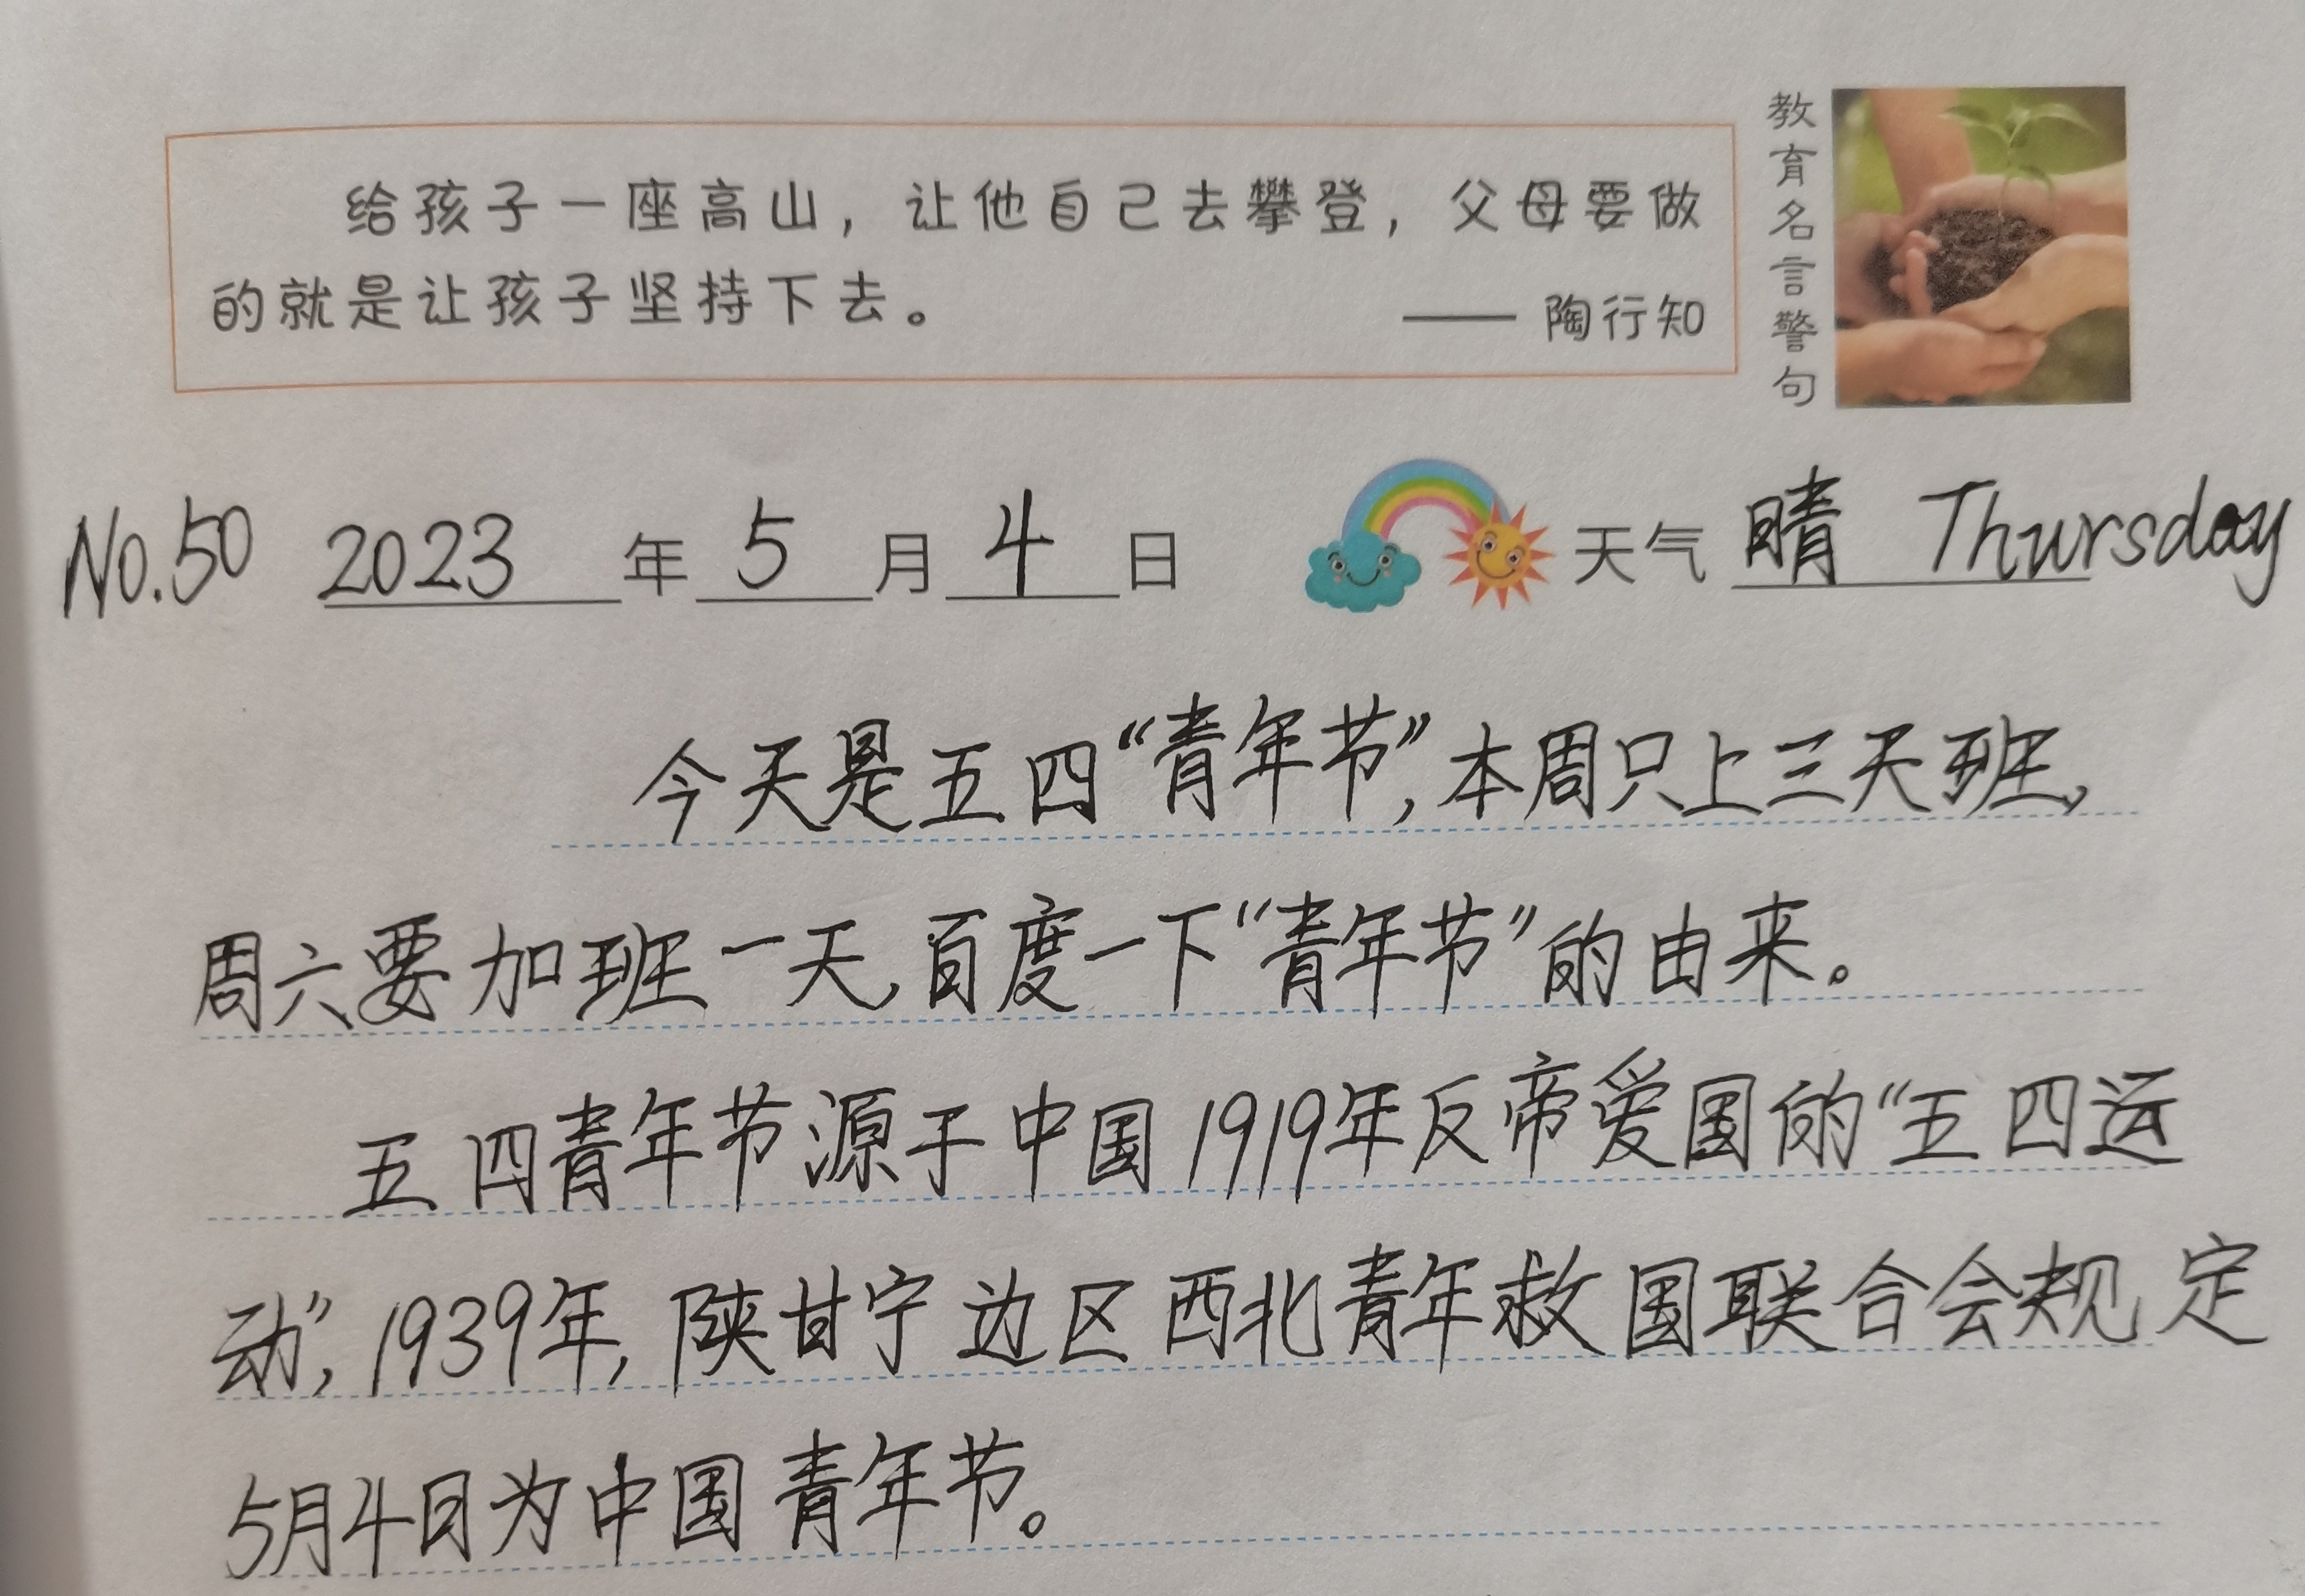 给孩子一座高山，让他自己去攀登，父母要做
的就是让孩子坚持下去。
—— 陶行知
教育名言警句
No.50 2023 年 5 月 4 日 天气 晴 Thursday
今天是五四“青年节”,本周只上三天班,
周六要加班一天,百度一下“青年节”的由来。
五四青年节源于中国1919年反帝爱国的“五四运
动”,1939年,陕甘宁边区西北青年救国联合会规定
5月4日为中国青年节。